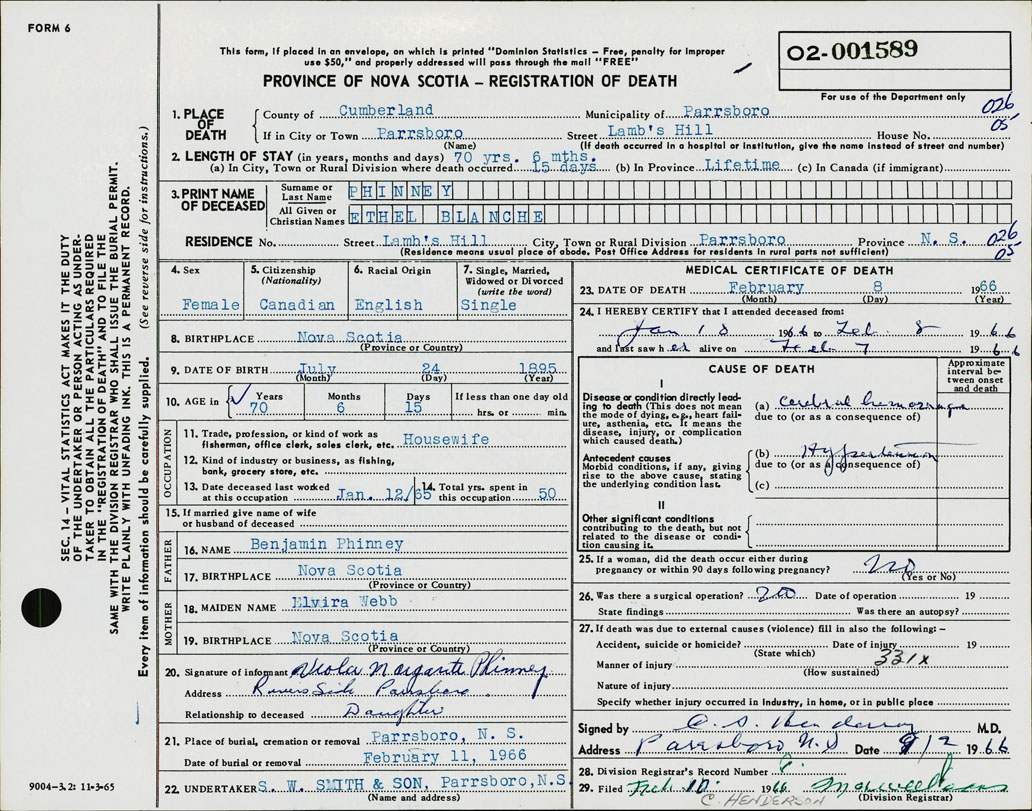 FORM 6
This form, if placed in an envelope, on which is printed "Dominion Statistics – Free, penalty for improper
use $50," and properly addressed will pass through the mail "FREE"
PROVINCE OF NOVA SCOTIA – REGISTRATION OF DEATH
02-001589
For use of the Department only
SEC. 14 – VITAL STATISTICS ACT MAKES IT THE DUTY
OF THE UNDERTAKER OR PERSON ACTING AS UNDER-
TAKER TO OBTAIN ALL THE PARTICULARS REQUIRED
IN THE "REGISTRATION OF DEATH" AND TO FILE THE
SAME WITH THE DIVISION REGISTRAR WHO SHALL ISSUE THE BURIAL PERMIT.
WRITE PLAINLY WITH UNFADING INK. THIS IS A PERMANENT RECORD.
Every item of information should be carefully supplied. (See reverse side for instructions.)
1. PLACE OF DEATH
County of Cumberland Municipality of Parrsboro 026
If in City or Town Parrsboro Street Lamb's Hill House No. 05
(Name) (If death occurred in a hospital or institution, give the name instead of street and number)
2. LENGTH OF STAY (in years, months and days) 70 yrs. 6 mths.
(a) In City, Town or Rural Division where death occurred 15 days (b) In Province Lifetime (c) In Canada (if immigrant)
3. PRINT NAME OF DECEASED
Surname or Last Name PHINNEY
All Given or Christian Names ETHEL BLANCHE
RESIDENCE No. Street Lamb's Hill City, Town or Rural Division Parrsboro Province N. S. 026
(Residence means usual place of abode. Post Office Address for residents in rural parts not sufficient) 05
4. Sex
Female
5. Citizenship
(Nationality)
Canadian
6. Racial Origin
English
7. Single, Married,
Widowed or Divorced
(write the word)
Single
8. BIRTHPLACE Nova Scotia
(Province or Country)
9. DATE OF BIRTH July 24 1895
(Month) (Day) (Year)
10. AGE in Years Months Days If less than one day old
70 6 15 hrs. or min.
OCCUPATION
11. Trade, profession, or kind of work as
fisherman, office clerk, sales clerk, etc. Housewife
12. Kind of industry or business, as fishing,
bank, grocery store, etc.
13. Date deceased last worked
at this occupation Jan. 12/65
14. Total yrs. spent in
this occupation 50
15. If married give name of wife
or husband of deceased
FATHER
16. NAME Benjamin Phinney
17. BIRTHPLACE Nova Scotia
(Province or Country)
MOTHER
18. MAIDEN NAME Elvira Webb
19. BIRTHPLACE Nova Scotia
(Province or Country)
20. Signature of informant Viola Margarite Phinney
Address Rivers Side Parrsboro
Relationship to deceased Daughter
21. Place of burial, cremation or removal Parrsboro, N. S.
Date of burial or removal February 11, 1966
22. UNDERTAKER S. W. SMITH & SON, Parrsboro, N.S.
(Name and address)
9004-3.2: 11-3-65
MEDICAL CERTIFICATE OF DEATH
23. DATE OF DEATH February 8 1966
(Month) (Day) (Year)
24. I HEREBY CERTIFY that I attended deceased from:
Jan 18 1966 to Feb. 8 1966
and last saw her alive on Feb 7 1966
CAUSE OF DEATH
Approximate
interval be-
tween onset
and death
I
Disease or condition directly lead-
ing to death (This does not mean
the mode of dying, e.g., heart fail-
ure, asthenia, etc. It means the
disease, injury, or complication
which caused death.)
(a) cerebral hemorrhage
due to (or as a consequence of)
Antecedent causes
Morbid conditions, if any, giving
rise to the above cause, stating
the underlying condition last.
(b) Hypertension
due to (or as a consequence of)
(c)
II
Other significant conditions
contributing to the death, but not
related to the disease or condi-
tion causing it.
25. If a woman, did the death occur either during
pregnancy or within 90 days following pregnancy? NO
(Yes or No)
26. Was there a surgical operation? no Date of operation 19
State findings Was there an autopsy?
27. If death was due to external causes (violence) fill in also the following: –
Accident, suicide or homicide? Date of injury 19
(State which) 331X
Manner of injury
(How sustained)
Nature of injury
Specify whether injury occurred in industry, in home, or in public place
Signed by C. S. Henderson M.D.
Address Parrsboro N.S Date 9/2 1966
28. Division Registrar's Record Number
29. Filed Feb 10 1966
(Division Registrar)
C. HENDERSON